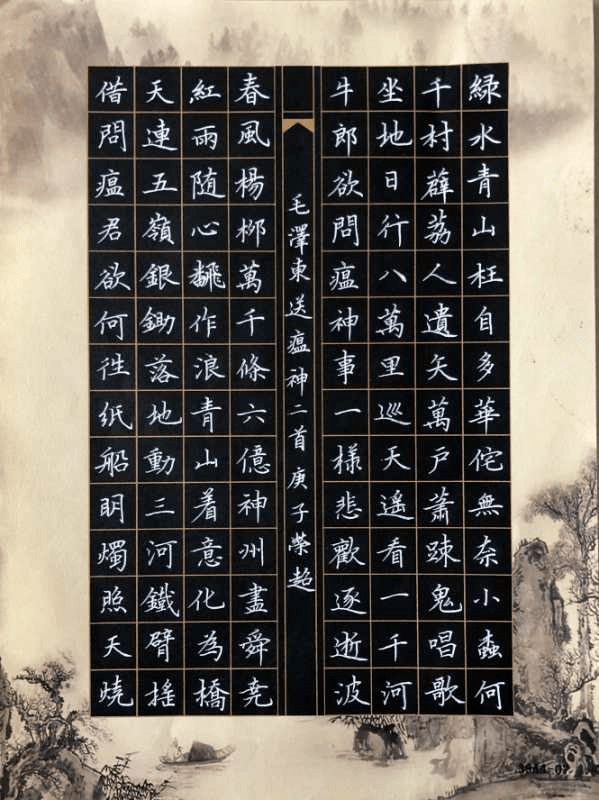 緑水青山枉自多華佗無奈小蟲何
千村薜荔人遺矢萬戶蕭踈鬼唱歌
坐地日行八萬里巡天遙看一千河
牛郎欲問瘟神事一樣悲歡逐逝波
毛澤東送瘟神二首庚子榮超
春風楊柳萬千條六億神州盡舜堯
紅雨隨心飜作浪青山着意化為橋
天連五嶺銀鋤落地動三河鐵臂搖
借問瘟君欲何往紙船明燭照天燒